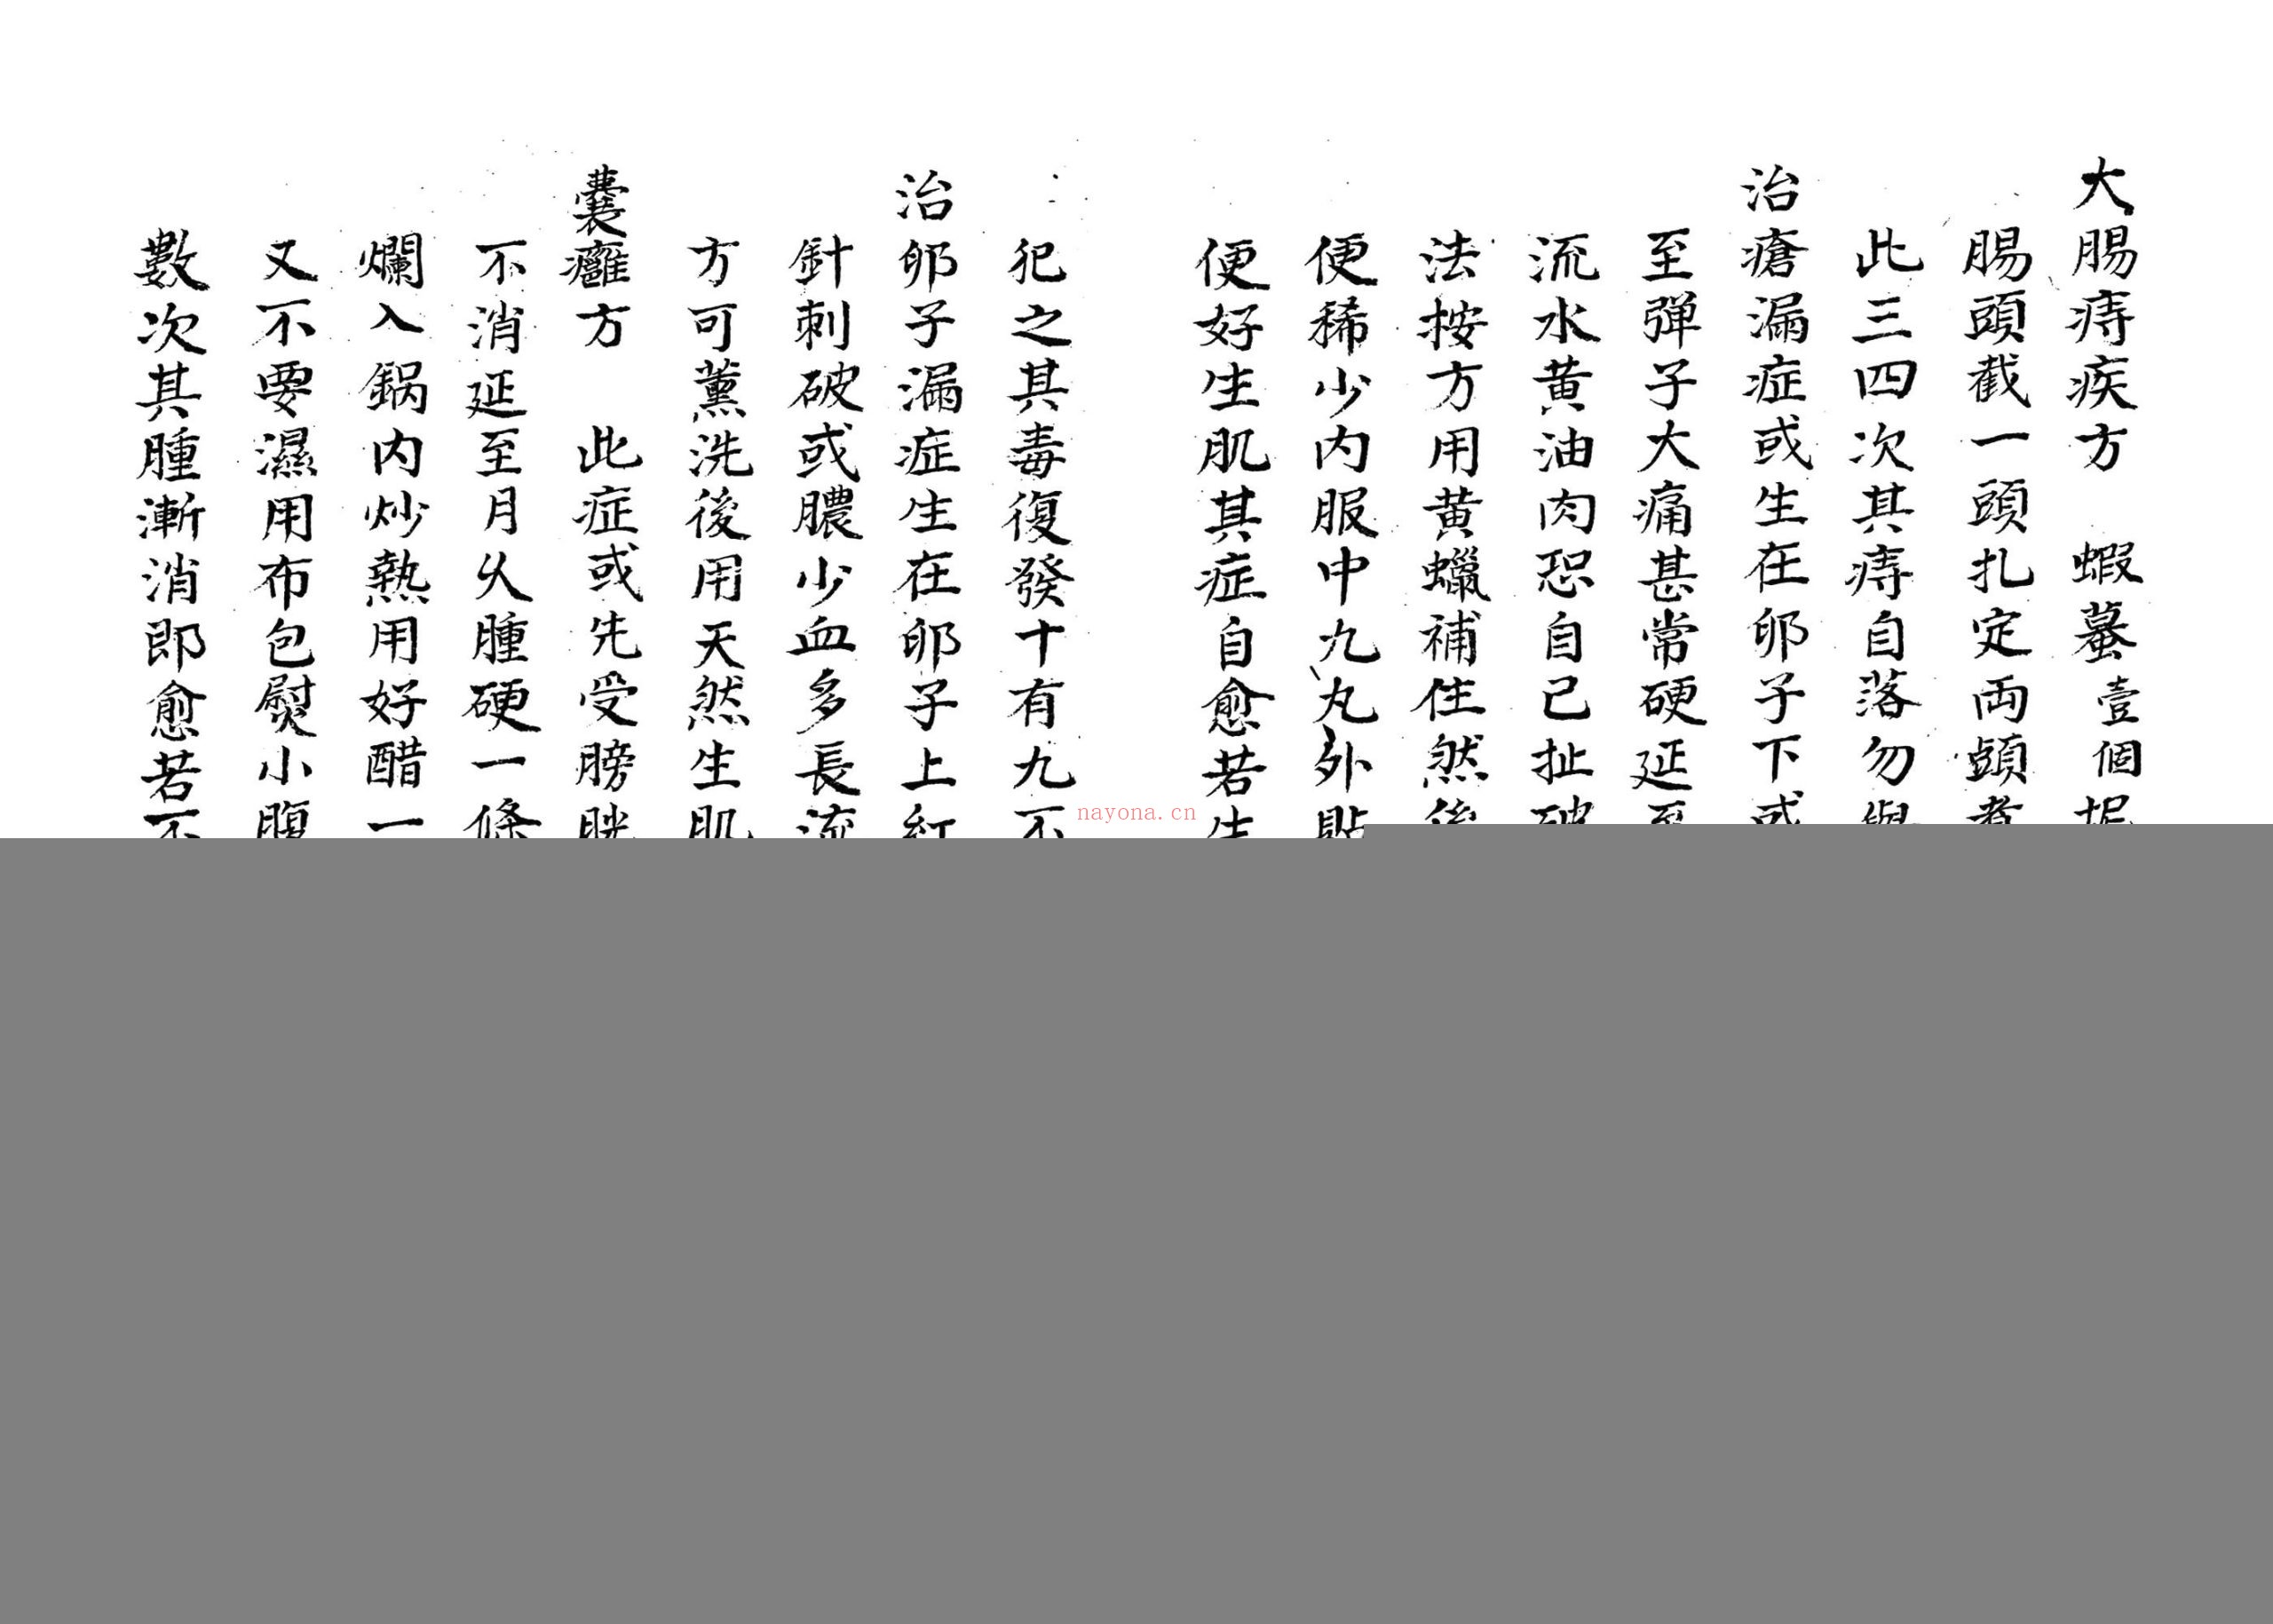 大腸痔疾方　蝦蟇壹個
腸頭截一頭扎定両頭煮
此三四次其痔自落勿與
治瘡漏症或生在卵子下或
至弾子大痛甚常硬延至
流水黄油肉恐自己扯破
法按方用黄蠟補住然後
便稀少内服中九丸外貼
便好生肌其症自愈若生
犯之其毒復發十有九不
治卵子漏症生在卵子上紅
針刺破或膿少血多長流
方可薰洗後用天然生肌
囊癰方　此症或先受膀胱
不消延至月久腫硬一條
爛入鍋内炒熱用好醋一
又不要濕用布包熨小腹
數次其腫漸消即愈若不
nayona.cn